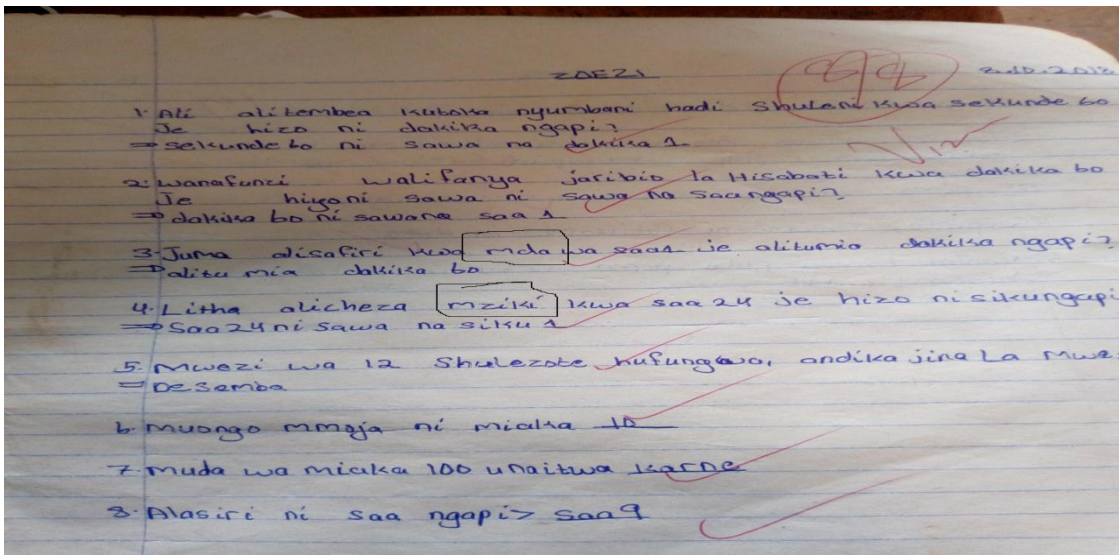 ZOEZI 2.10.2018
1. Ali alitembea kutoka nyumbani hadi Shuleni kwa sekunde 60
Je hizo ni dakika ngapi?
⇒ sekunde 60 ni sawa na dakika 1
2. Wanafunzi walifanya jaribio la Hisabati kwa dakika 60
Je hiyo ni sawa ni sawa na saa ngapi?
⇒ dakika 60 ni sawa na saa 1
3. Juma alisafiri kwa mda wa saa 1 je alitumia dakika ngapi?
⇒ alitu mia dakika 60
4. Litha alicheza mziki kwa saa 24 je hizo ni siku ngapi
⇒ Saa 24 ni sawa na siku 1
5. Mwezi wa 12 Shule zote hufungwa, andika jina La mwe
= Desemba
6. muongo mmoja ni miaka 10
7. muda wa miaka 100 unaitwa karne
8. Alasiri ni saa ngapi> saa 9